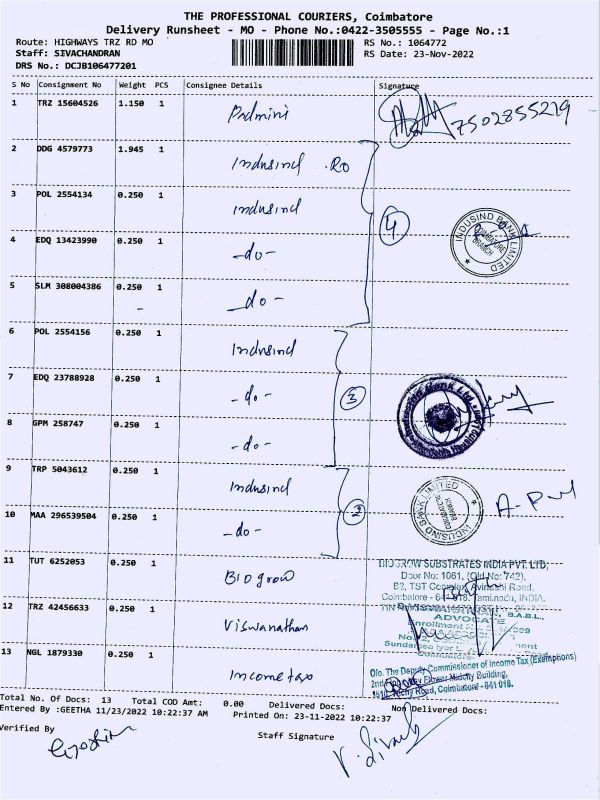 THE PROFESSIONAL COURIERS, Coimbatore
Delivery Runsheet - MO - Phone No.:0422-3505555 - Page No.:1
Route: HIGHWAYS TRZ RD MO
RS No.: 1064772
Staff: SIVACHANDRAN
RS Date: 23-Nov-2022
DRS No.: DCJB106477201
S No Consignment No Weight PCS Consignee Details Signature
1 TRZ 15604526 1.150 1 Padmini 7502855219
2 DDG 4579773 1.945 1 Indusind .RO
3 POL 2554134 0.250 1 Indusind
4 EDQ 13423990 0.250 1 -do-
4
INDUSIND BANK LIMITED
COIMBATORE
BRANCH
5 SLM 308004386 0.250 1 -do-
6 POL 2554156 0.250 1 Indusind
7 EDQ 23788928 0.250 1 -do-
3
8 GPM 258747 0.250 1 -do-
9 TRP 5043612 0.250 1 Indusind
10 MAA 296539504 0.250 1 -do-
2
INDUSIND BANK LIMITED
COIMBATORE
BRANCH
11 TUT 6252053 0.250 1 Biogrow
BIOGROW SUBSTRATES INDIA PVT. LTD,
Door No: 1061, (Old No: 742),
B2, TST Complex, Avinashi Road,
Coimbatore - 641 018. Tamilnadu, INDIA.
12 TRZ 42456633 0.250 1 Viswanathan
B.A.B.L.,
ADVOCATE
Enrollment
13 NGL 1879330 0.250 1 Income tax
O/o. The Deputy Commissioner of Income Tax (Exemptions)
2nd Floor, Building,
Road, Coimbatore - 641 018.
Total No. Of Docs: 13 Total COD Amt: 0.00 Delivered Docs: Non Delivered Docs:
Entered By :GEETHA 11/23/2022 10:22:37 AM Printed On: 23-11-2022 10:22:37
Verified By
Staff Signature